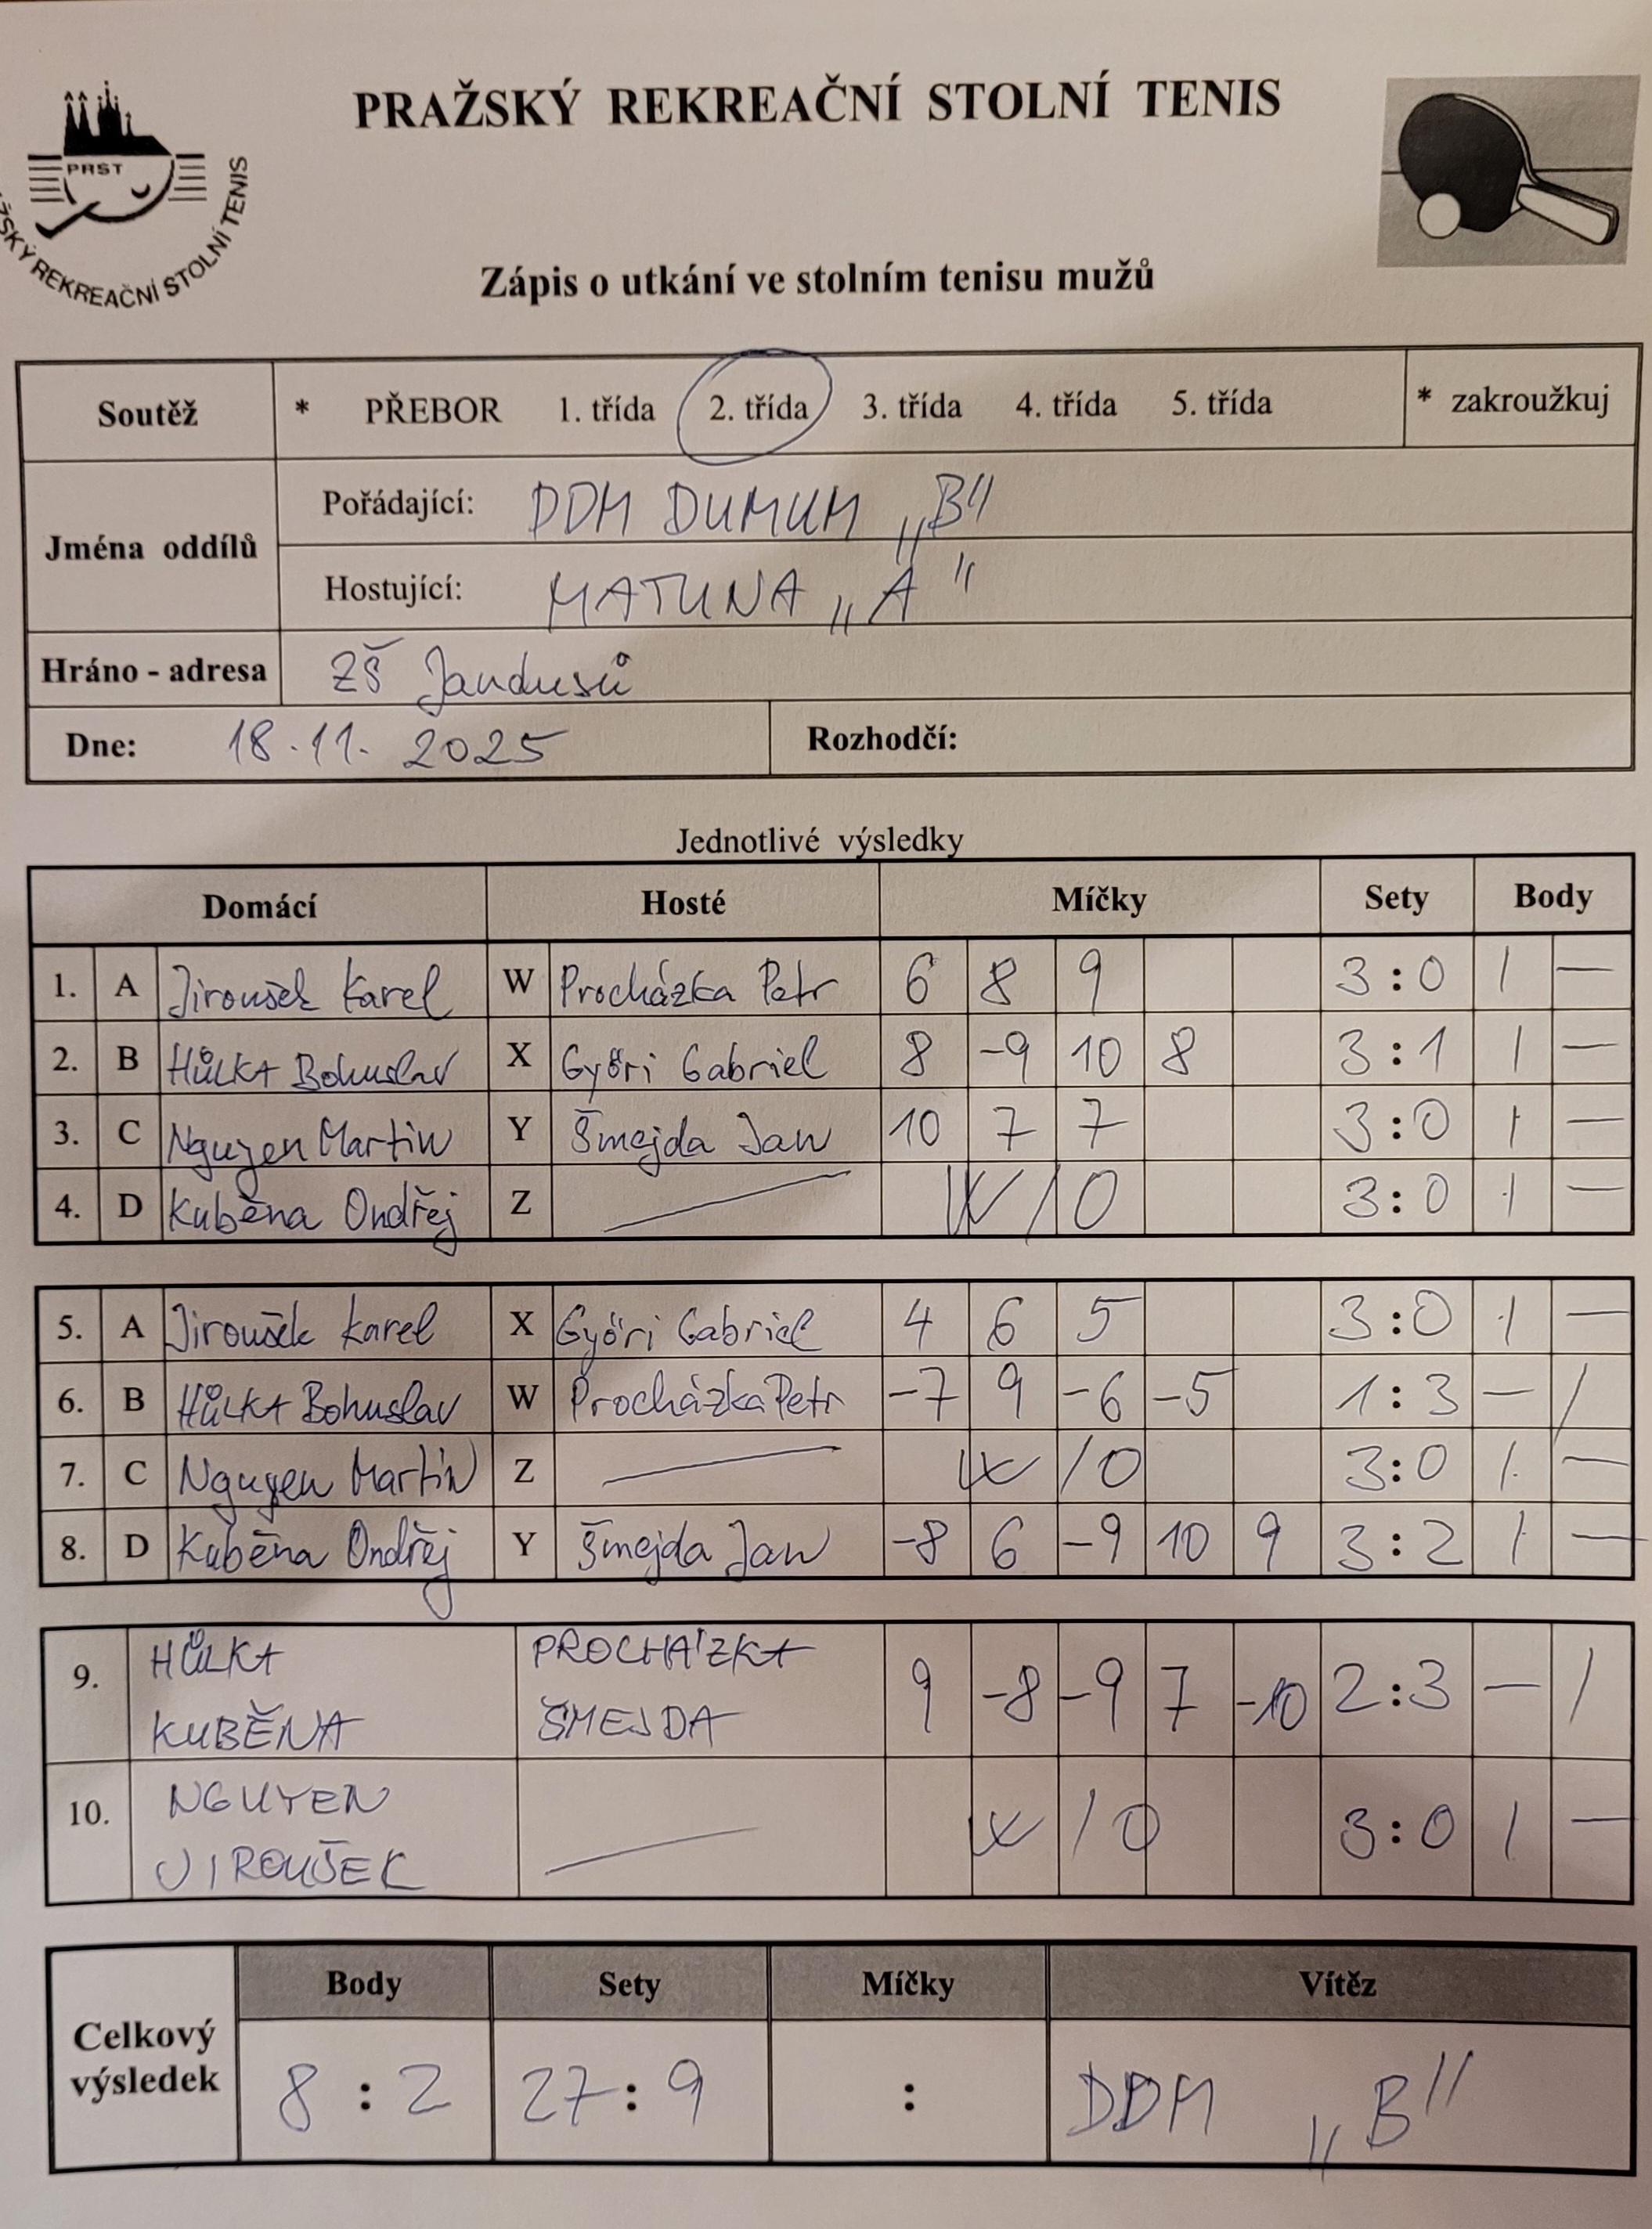 PRAŽSKÝ REKREAČNÍ STOLNÍ TENIS
PRST
ŽSKÝ REKREAČNÍ STOLNÍ TENIS
Zápis o utkání ve stolním tenisu mužů
Soutěž * PŘEBOR 1. třída 2. třída 3. třída 4. třída 5. třída * zakroužkuj
Jména oddílů
Pořádající: DDM DUMUM „B"
Hostující: MATUNA „A"
Hráno - adresa ZŠ Jandusů
Dne: 18.11. 2025 Rozhodčí:
Jednotlivé výsledky
Domácí Hosté Míčky Sety Body
1. A Jiroušek Karel W Procházka Petr 6 8 9 3:0 1 —
2. B HŮLKA Bohuslav X Győri Gabriel 8 -9 10 8 3:1 1 —
3. C Nguyen Martin Y Šmejda Jan 10 7 7 3:0 1 —
4. D Kuběna Ondřej Z — W/O 3:0 1 —
5. A Jiroušek Karel X Győri Gabriel 4 6 5 3:0 1 —
6. B HŮLKA Bohuslav W Procházka Petr -7 9 -6 -5 1:3 — 1
7. C Nguyen Martin Z — W/O 3:0 1 —
8. D Kuběna Ondřej Y Šmejda Jan -8 6 -9 10 9 3:2 1 —
9. HŮLKA PROCHÁZKA 9 -8 -9 7 -10 2:3 — 1
KUBĚNA ŠMEJDA
10. NGUYEN — W/O 3:0 1 —
JIROUŠEK
Celkový výsledek
Body Sety Míčky Vítěz
8:2 27:9 : DDM „B"